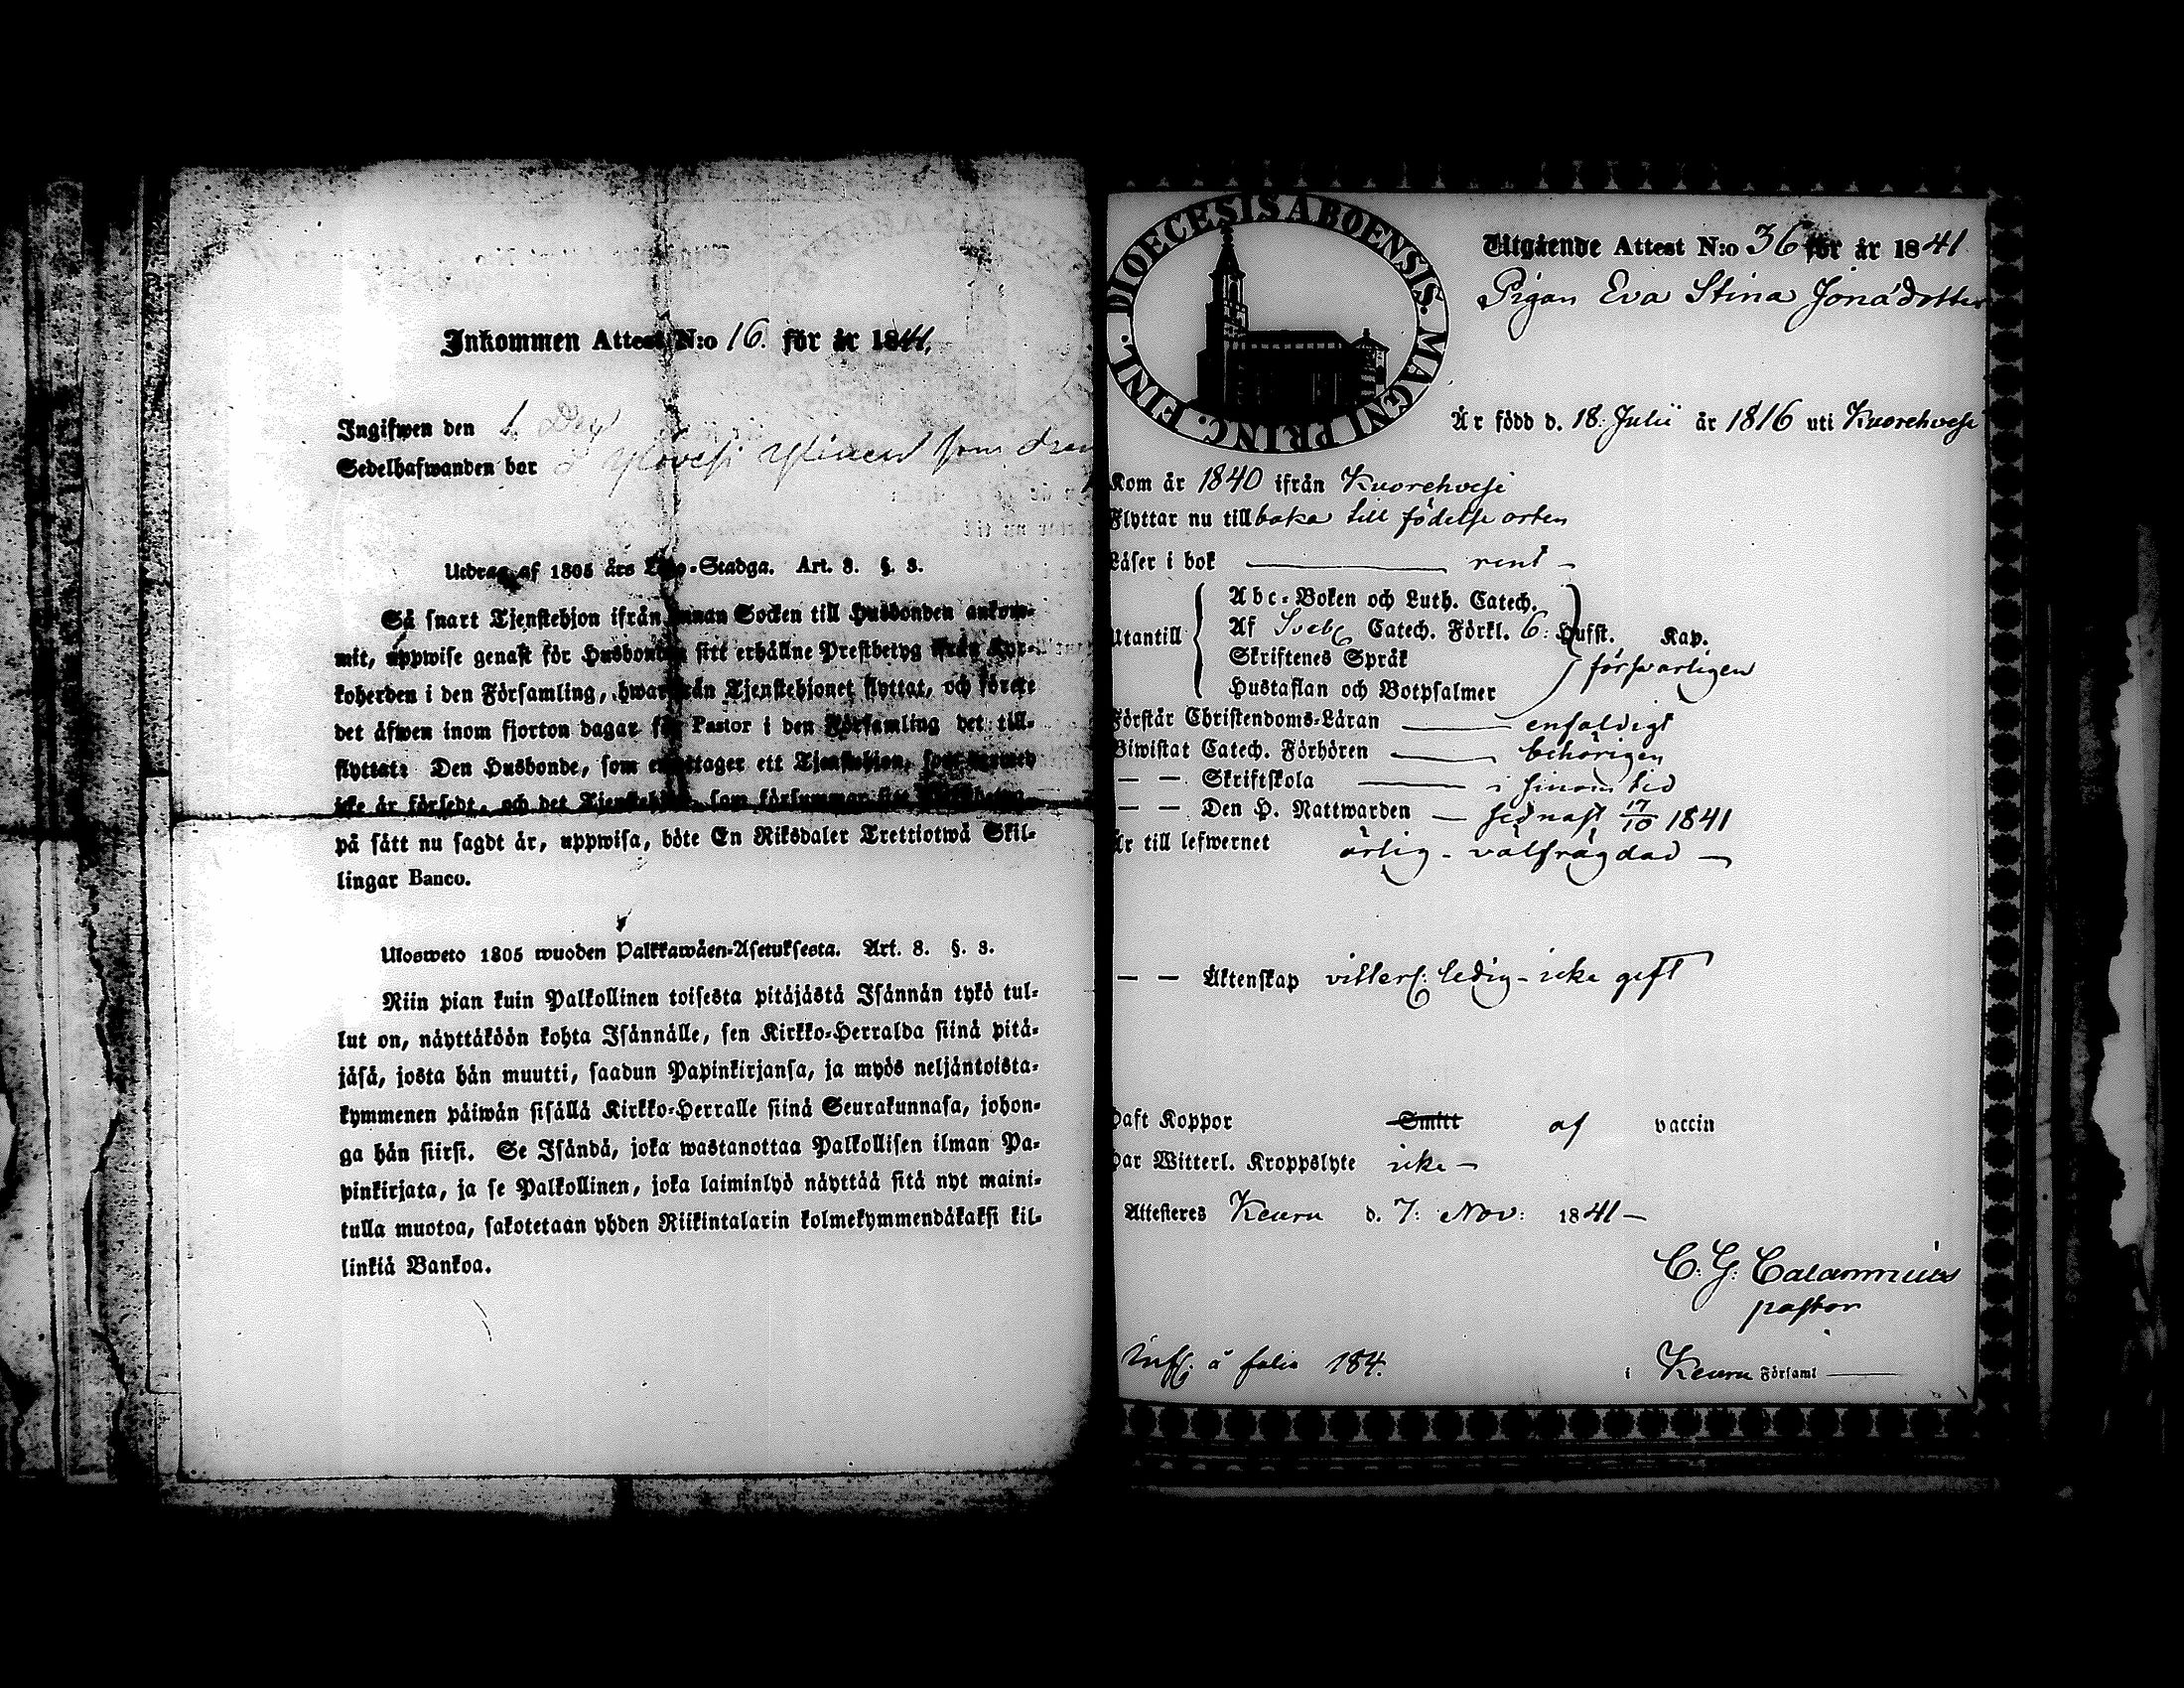 Inkommen Attest N:o 16. för år 1841.
Ingifwen den
Sedelhafwanden bor
Utdrag af 1805 års Lego-Stadga. Art. 8. §. 3.
Så snart Tjenstehjon ifrån annan Socken till Husbonden ankom-
mit, uppwise genast för Husbonden sitt erhållne Prestbetyg ifrån Kyr-
koherden i den Församling, hwarifrån Tjenstehjonet flyttat, och förete
det äfwen inom fjorton dagar för Pastor i den Församling det till-
flyttat: Den Husbonde, som emottager ett Tjenstehjon, som
icke är försedt, och det Tjenstehjon, som försummar sitt
på sätt nu sagdt är, uppwisa, böte En Riksdaler Trettiotwå Skil-
lingar Banco.
Ulosweto 1805 wuoden Palkkawäen-Asetuksesta. Art. 8. §. 3.
Niin pian kuin Palkollinen toisesta pitäjästä Isännän tykö tul-
lut on, näyttäköön kohta Isännälle, sen Kirkko-Herralda siinä pitä-
jäsä, josta hän muutti, saadun Papinkirjansa, ja myös neljäntoista-
kymmenen päiwän sisällä Kirkko-Herralle siinä Seurakunnasa, johon-
ga hän siirsi. Se Isändä, joka wastanottaa Palkollisen ilman Pa-
pinkirjata, ja se Palkollinen, joka laiminlyö näyttää sitä nyt maini-
tulla muotoa, sakotetaan yhden Riikintalarin kolmekymmendäkaksi kil-
linkiä Bankoa.
DIOECESIS ABOENSIS. MAGNI PRINC. FINL.
Utgående Attest N:o 36 för år 1841
Pigan Eva Stina Jonadotter
Är född d. 18. Julii år 1816 uti Kuorehvesi
Kom år 1840 ifrån Kuorehvesi
Flyttar nu tillbaka till födelse orten
Läser i bok — rent —
Utantill
Abc-Boken och Luth. Catech.
Af Sveb. Catech. Förkl. 6: Hufst. Kap.
Skriftenes Språk
försvarligen
Hustaflan och Botpsalmer
Förstår Christendoms-Läran — enfaldigt
Biwistat Catech. Förhören — behörigen
— — Skriftskola — i sinom tid
— — Den H. Nattwarden — sednast 17/10 1841
Är till lefwernet ärlig - välfrägdad —
— — Äktenskap vitterl. ledig - icke gift
Haft Koppor Smitt af vaccin
Har Witterl. Kroppslyte icke —
Attesteres Keuru d. 7: Nov: 1841 —
C. G. Calamnius
pastor
Inf. å folio 184.
i Keuru Församl